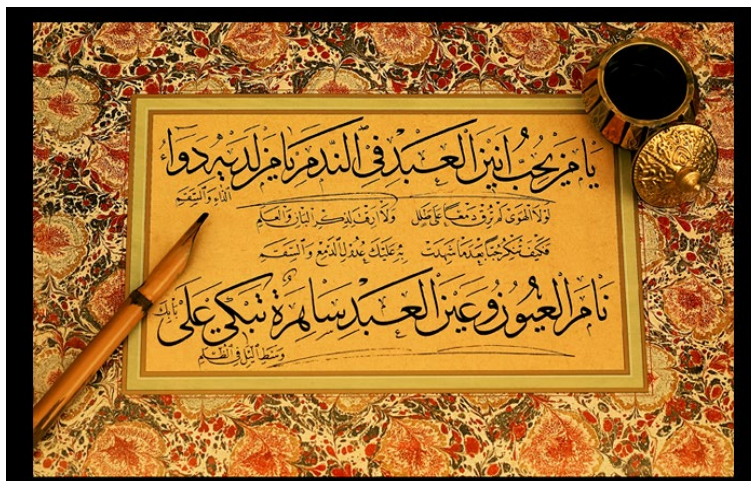 يَا مَنْ يُحِبُّ اَنِينَ الْعَبْدِ فِي النَّدَمِ يَا مَنْ لَدَيْهِ دَوَاءُ
الدَّاءِ وَالسَّقَمِ
لَوْلَا الْهَوَى لَمْ تُرِقْ دَمْعًا عَلَى طَلَلٍ وَلَا اَرِقْتَ لِذِكْرِ الْبَانِ وَالْعَلَمِ
فَكَيْفَ تُنْكِرُ حُبًّا بَعْدَ مَا شَهِدَتْ بِهِ عَلَيْكَ عُدُولُ الدَّمْعِ وَالسَّقَمِ
نَامَ الْعُيُونُ وَعَيْنُ الْعَبْدِ سَاهِرَةٌ تَبْكِي عَلَى بَابِكَ
وَسْطَ الَّيْلِ فِي الظُّلَمِ